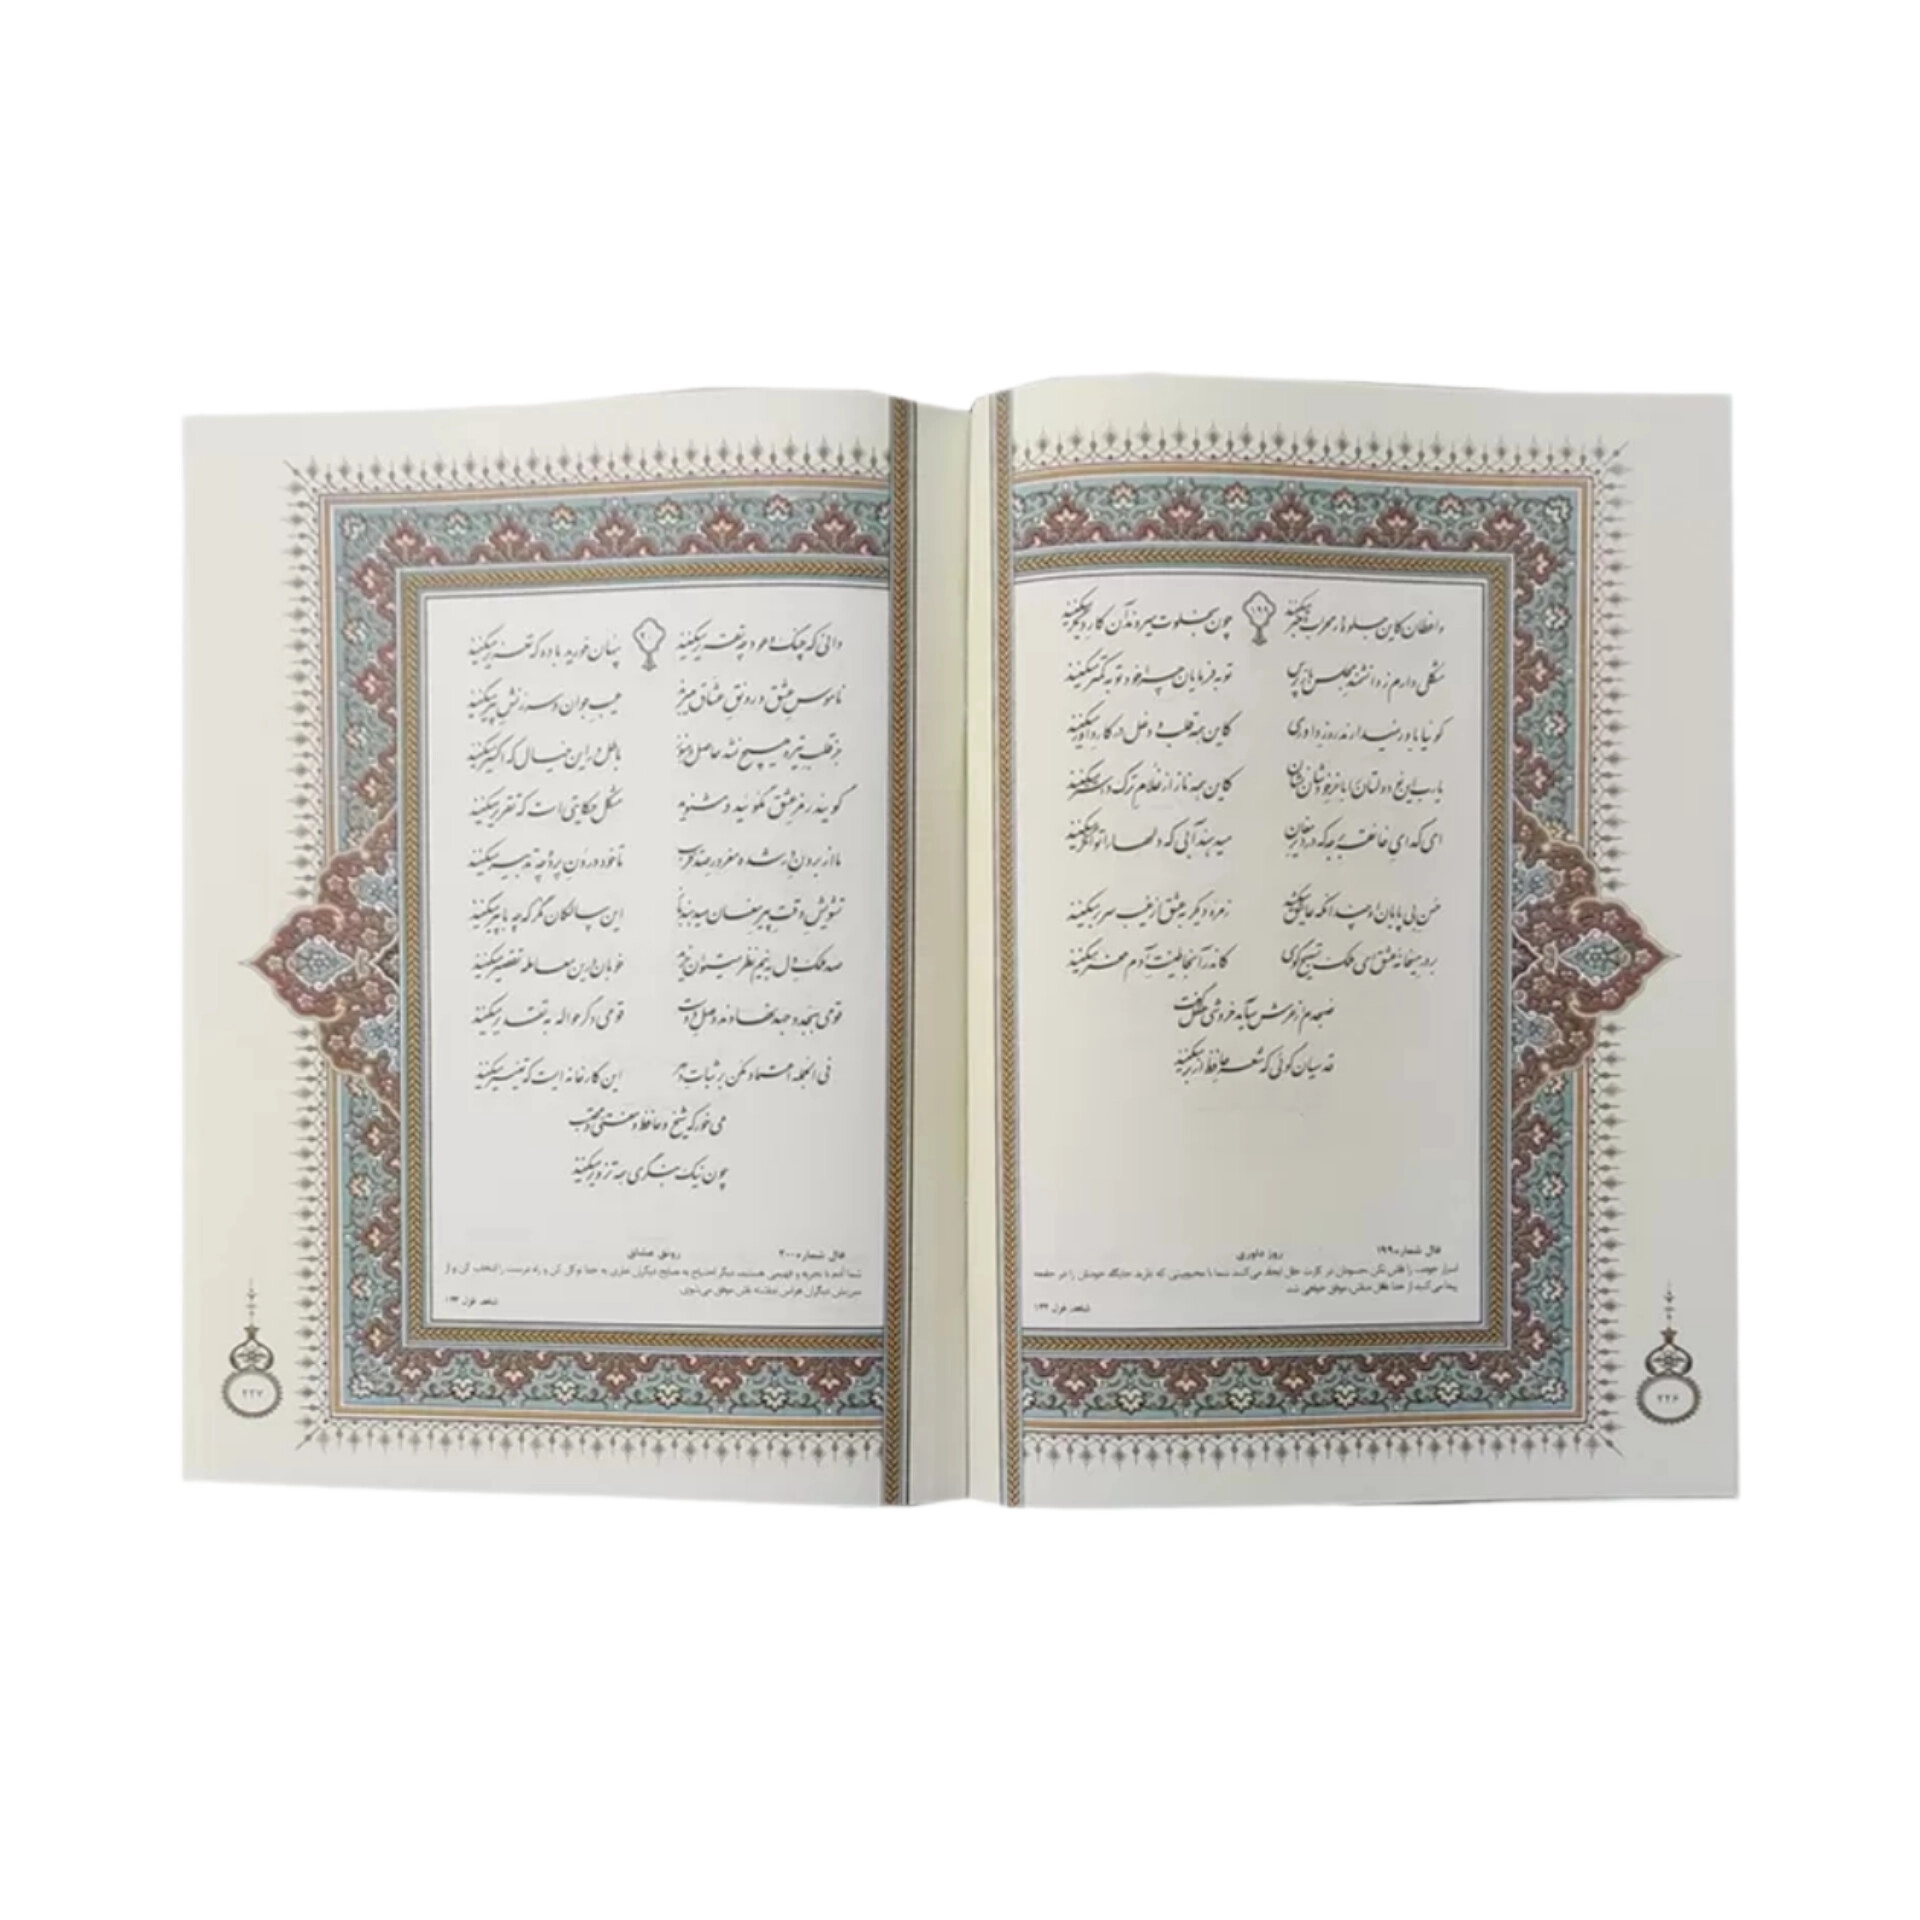 واعظان کاین جلوه در محراب و منبر میکنند ۱۹۹ چون بخلوت میروند آن کار دیگر میکنند
مشکلی دارم ز دانشمند مجلس باز پرس توبه فرمایان چرا خود توبه کمتر میکنند
گوئیا باور نمیدارند روز داوری کاین همه قلب و دغل در کار داور میکنند
یارب این نودولتان را با خر خودشان نشان کاین همه ناز از غلام ترک و استر میکنند
ای گدای خانقه برجه که در دیر مغان میدهند آبی که دلها را توانگر میکنند
حسن بی پایان او چندانکه عاشق میکشد زمره دیگر به عشق از غیب سر بر میکنند
بر در میخانه عشق ای ملک تسبیح گوی کاندر آنجا طینت آدم مخمر میکنند
صبحدم از عرش میآید خروشی عقل گفت
قدسیان گوئی که شعر حافظ از بر میکنند
فال شماره ۱۹۹ روز داوری
اسرار خودت را فاش نکن حسودان در کارت خلل ایجاد می‌کنند شما با محبوبیتی که دارید جایگاه خودتان را در جامعه
پیدا می‌کنید از خدا غافل مباش موفق خواهی شد.
شاهد غزل ۱۳۲
۲۲۶
دانی که چنگ و عود چه تقریر میکنند ۲۰۰ پنهان خورید باده که تعزیر میکنند
ناموس عشق و رونق عشاق میبرند عیب جوان و سرزنش پیر میکنند
جز قلب تیره هیچ نشد حاصل و هنوز باطل در این خیال که اکسیر میکنند
گویند رمز عشق مگوئید و مشنوید مشکل حکایتی است که تقریر میکنند
ما از برون در شده مغرور صد فریب تا خود درون پرده چه تدبیر میکنند
تشویش وقت پیر مغان میدهند باز این سالکان نگر که چه با پیر میکنند
صد ملک دل به نیم نظر میتوان خرید خوبان در این معامله تقصیر میکنند
قومی بجد و جهد نهادند وصل دوست قومی دگر حواله به تقدیر میکنند
فی الجمله اعتماد مکن بر ثبات دهر این کارخانه ایست که تغییر میکنند
می خور که شیخ و حافظ و مفتی و محتسب
چون نیک بنگری همه تزویر میکنند
فال شماره ۲۰۰ رونق عشاق
شما آدم با تجربه و فهیمی هستید، دیگر احتیاج به نصایح دیگران نداری به خدا توکل کن و راه درست را انتخاب کن و از
سرزنش دیگران هراس نداشته باش موفق می‌شوی.
شاهد غزل ۱۳۳
۲۲۷